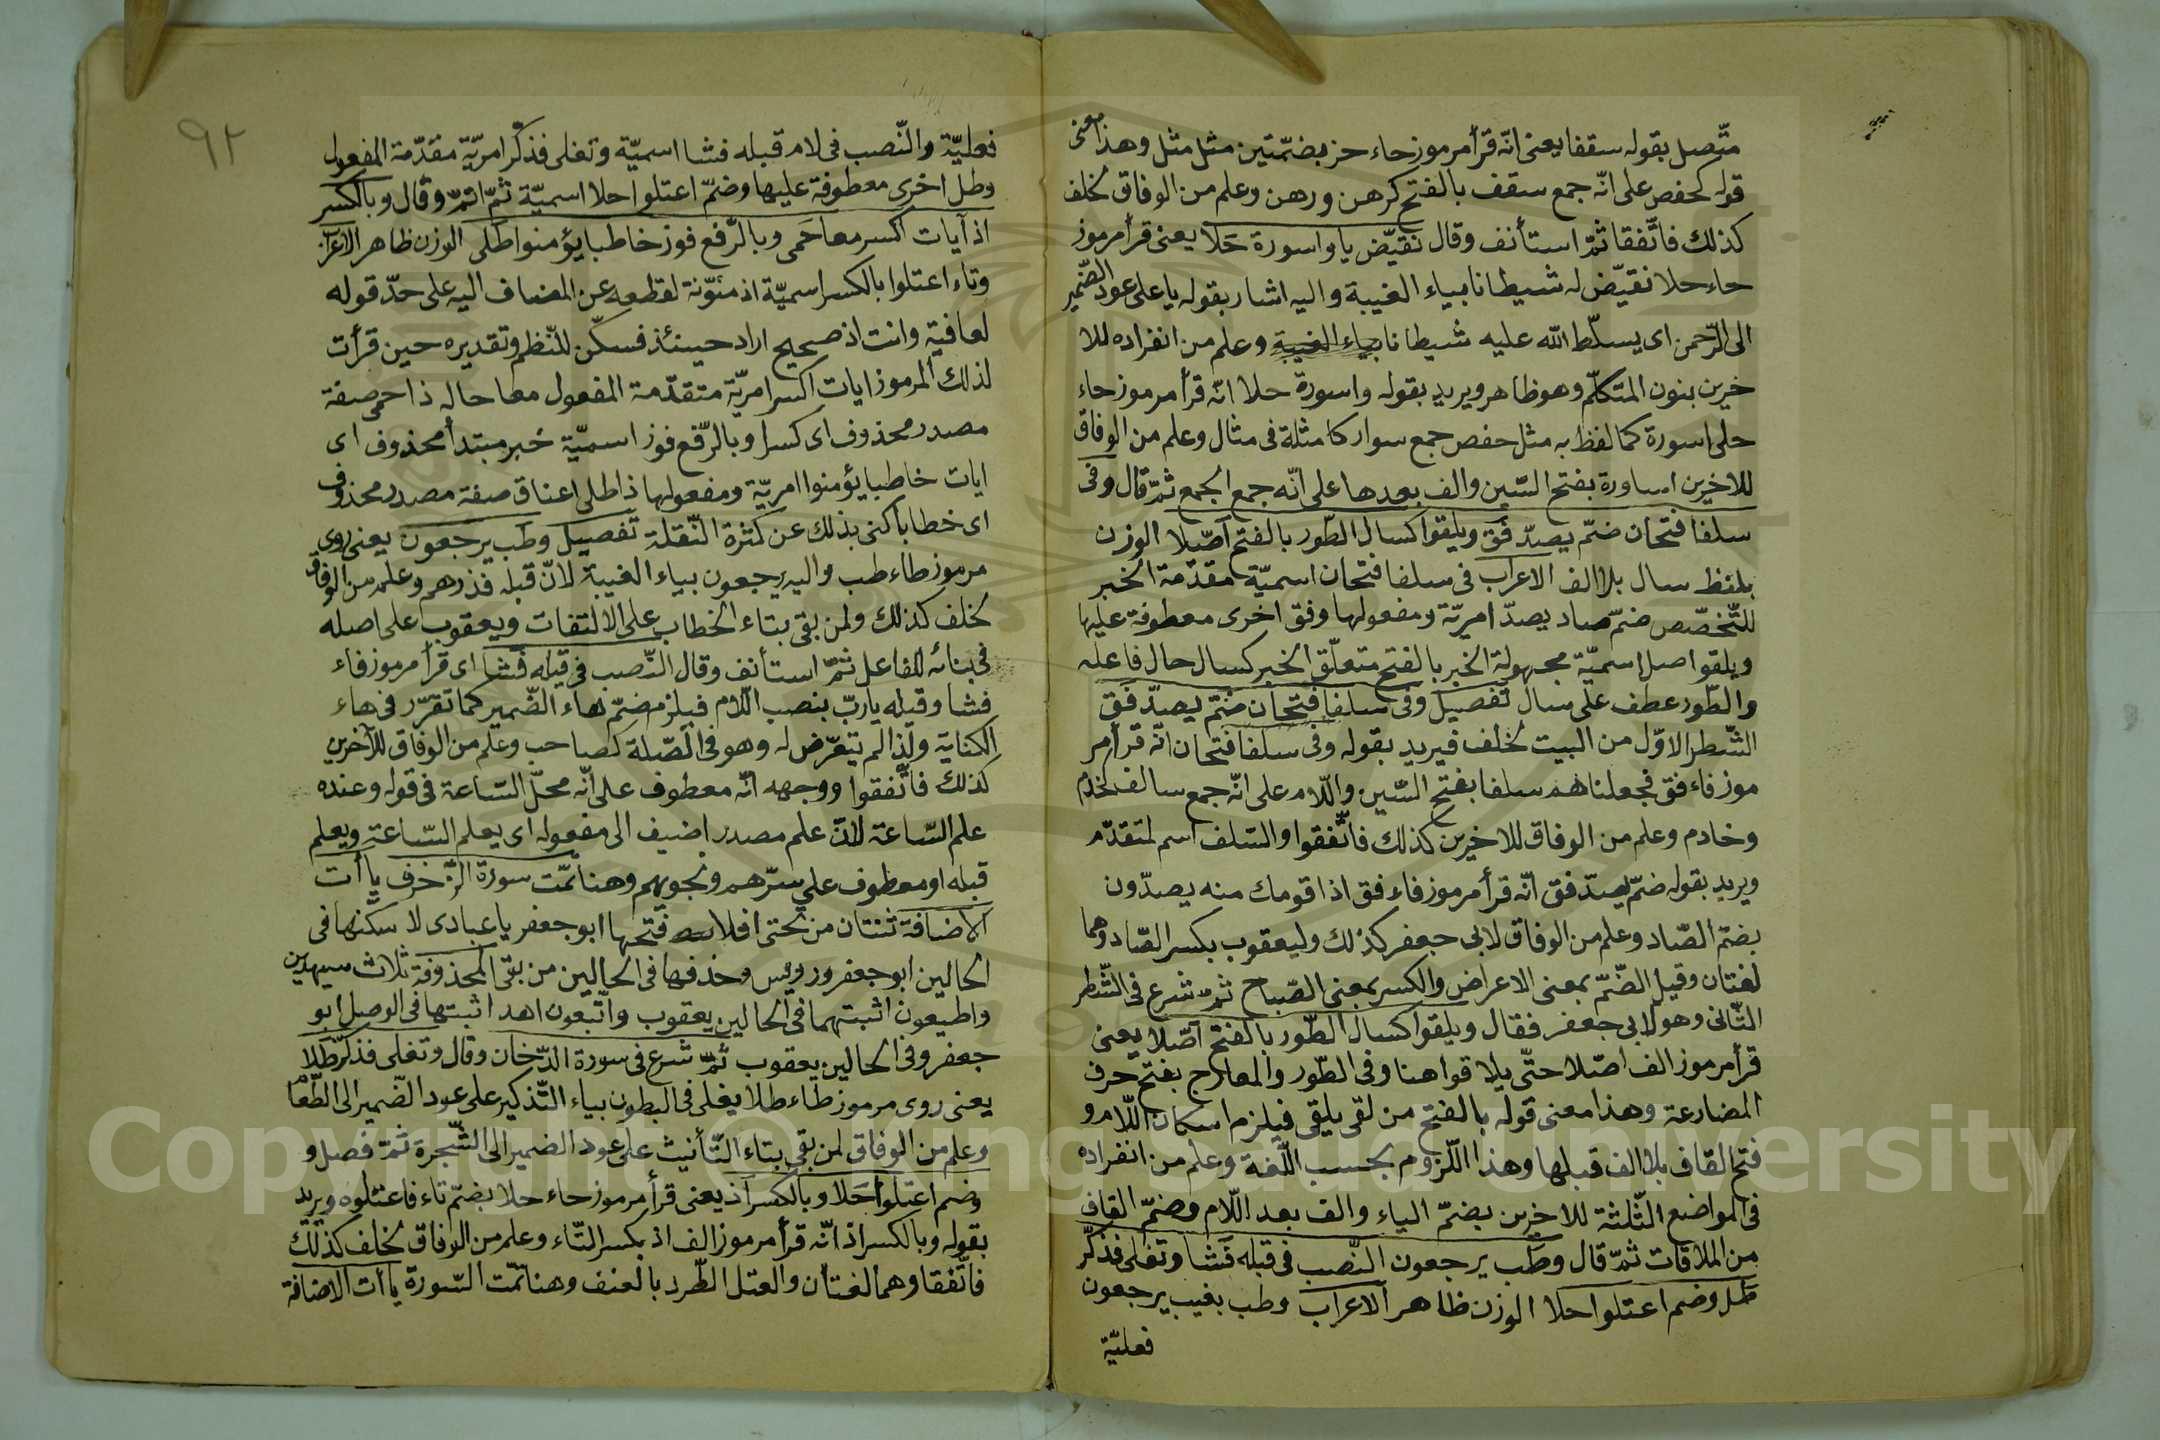 متّصل بقوله سقفا يعنى انّه قرأ مرموز حاء حز بضمّتين مثل مثل وهذا معنى
قوله كحفص على انّه جمع سقف بالفتح كرهن ورهن وعلم من الوفاق لخلف
كذلك فاتّفقا ثمّ استأنف وقال نقيّض يا واسورة حَلا يعنى قرأ مرموز
حاء حلا نقيّض له شيطانا بياء الغيبة واليه اشار بقوله يا على عود الضّمير
الى الرّحمن اى يسلّط الله عليه شيطانا بياء الغيبة وعلم من انفراده للا
خرين بنون المتكلّم وهو ظاهر ويريد بقوله واسورة حلا انّه قرأ مرموز حاء
حلى اسورة كما لفظ به مثل حفص جمع سوار كامثلة فى مثال وعلم من الوفاق
للاخرين اساورة بفتح السّين والف بعدها على انّه جمع الجمع ثمّ قال وفى
سلفا فتحان ضمّ يصدّ فق ويلقوا كسال الطّور بالفتح اصّلا الوزن
بلفظ سال بلا الف الاعراب فى سلفا فتحان اسميّة مقدّمة الخبر
للتّخصّص ضمّ صاد يصدّ امريّة ومفعولها وفق اخرى معطوفة عليها
ويلقوا صل اسميّة مجهولة الخبر بالفتح متعلّق الخبر كسال حال فاعله
والطّور عطف على سال تفصيل وفى سلفا فتحان ضمّ يصدّ فق
الشّطر الاوّل من البيت لخلف فيريد بقوله وفى سلفا فتحان انّه قرأ مر
موز فاء فق فجعلناهم سلفا بفتح السّين واللّام على انّه جمع سالف كخدم
وخادم وعلم من الوفاق للاخرين كذلك فاتّفقوا والسّلف اسم لمتقدّم
ويريد بقوله ضمّ يصدّ فق انّه قرأ مرموز فاء فق اذا قومك منه يصدّون
بضمّ الصّاد وعلم من الوفاق لابى جعفر كذلك وليعقوب بكسر الصّاد وهما
لغتان وقيل الضّمّ بمعنى الاعراض والكسر بمعنى الصّياح ثمّ شرع فى الشّطر
الثّانى وهو لابى جعفر فقال ويلقوا كسال الطّور بالفتح اصّلا يعنى
قرأ مرموز الف اصّلا حتّى يلاقوا هنا وفى الطّور والمعارج بفتح حرف
المضارعة وهذا معنى قوله بالفتح من لقى يلقى فيلزم اسكان اللّام و
فتح القاف بلا الف قبلها وهذا اللّزوم بحسب اللّغة وعلم من انفراده
فى المواضع الثّلثة للاخرين بضمّ الياء والف بعد اللّام وضمّ القاف
من الملاقات ثمّ قال وطب يرجعون النّصب فى قبله فشا وتغلى فذكّر
طل وضم اعتلوا حلا الوزن ظاهر الاعراب وطب بغيب يرجعون
فعليّة
٩٢
فعليّة والنّصب فى لام قبله فشا اسميّة وتغلى فذكّر امريّة مقدّمة المفعول
وطل اخرى معطوفة عليها وضمّ اعتلوا حلا اسميّة ثمّ اتمّ وقال وبالكسر
اذ آيات اكسر معا حَمى وبالرّفع فوز خاطبا يؤمنوا طلى الوزن ظاهر الاعراب
وتاء اعتلوا بالكسر اسميّة اذ منوّنة لقطعه عن المضاف اليه على حدّ قوله
لعافية وانت اذ صحيح اراد حينئذ فسكّن للنّظم وتقديره حين قرأت
لذلك المرموز ايات اكسر امريّة متقدّمة المفعول معا حاله ذا حمى صفة
مصدر محذوف اى كسرا وبالرّفع فوز اسميّة خبر مبتدأ محذوف اى
ايات خاطبا يؤمنوا امريّة ومفعولها ذا طلى اعناق صفة مصدر محذوف
اى خطابا كنى بذلك عن كثرة النّقلة تفصيل وطب يرجعون يعنى روى
مرموز طاء طب واليه يرجعون بياء الغيبة لانّ قبله فذرهم وعلم من الوفاق
لخلف كذلك ولمن بقى بتاء الخطاب على الالتفات ويعقوب على اصله
فى بنائه للفاعل ثمّ استأنف وقال النّصب فى قيله فشا اى قرأ مرموز فاء
فشا وقيله يا ربّ بنصب اللّام فيلزم ضمّ هاء الضّمير كما تقرّر فى هاء
الكناية ولذا لم يتعرّض له وهو فى الصّلة كصاحب وعلم من الوفاق للآخرين
كذلك فاتّفقوا ووجهه انّه معطوف على انّه محلّ السّاعة فى قوله وعنده
علم السّاعة لانّ علم مصدر اضيف الى مفعوله اى يعلم السّاعة ويعلم
قبله او معطوف على سرّهم ونجويهم وهنا تمّت سورة الزّخرف ياأت
الاضافة ثنتان من تحتى افلا فتحها ابو جعفر يا عبادى لا سكنها فى
الحالين ابو جعفر ورويس وحذفها فى الحالين من بقى المحذوفة ثلاث سيهدين
واطيعون اثبتهما فى الحالين يعقوب واتّبعون اهد اثبتها فى الوصل ابو
جعفر وفى الحالين يعقوب ثمّ شرع فى سورة الدّخان وقال وتغلى فذكّر طلا
يعنى روى مرموز طاء طلا يغلى فى البطون بياء التّذكير على عود الضّمير الى الطّعام
وعلم من الوفاق لمن بقى بتاء التّأنيث على عود الضمير الى الشّجرة ثمّ فصل و
وضم اعتلوا حَلا وبالكسر اذ يعنى قرأ مرموز حاء حلا بضمّ تاء فاعتلوه ويريد
بقوله وبالكسر اذ انّه قرأ مرموز الف اذ بكسر التّاء وعلم من الوفاق لخلف كذلك
فاتّفقا وهما لغتان والعتل الطّرد بالعنف وهنا تمّت السّورة ياأت الاضافة
Copyright © King Saud University